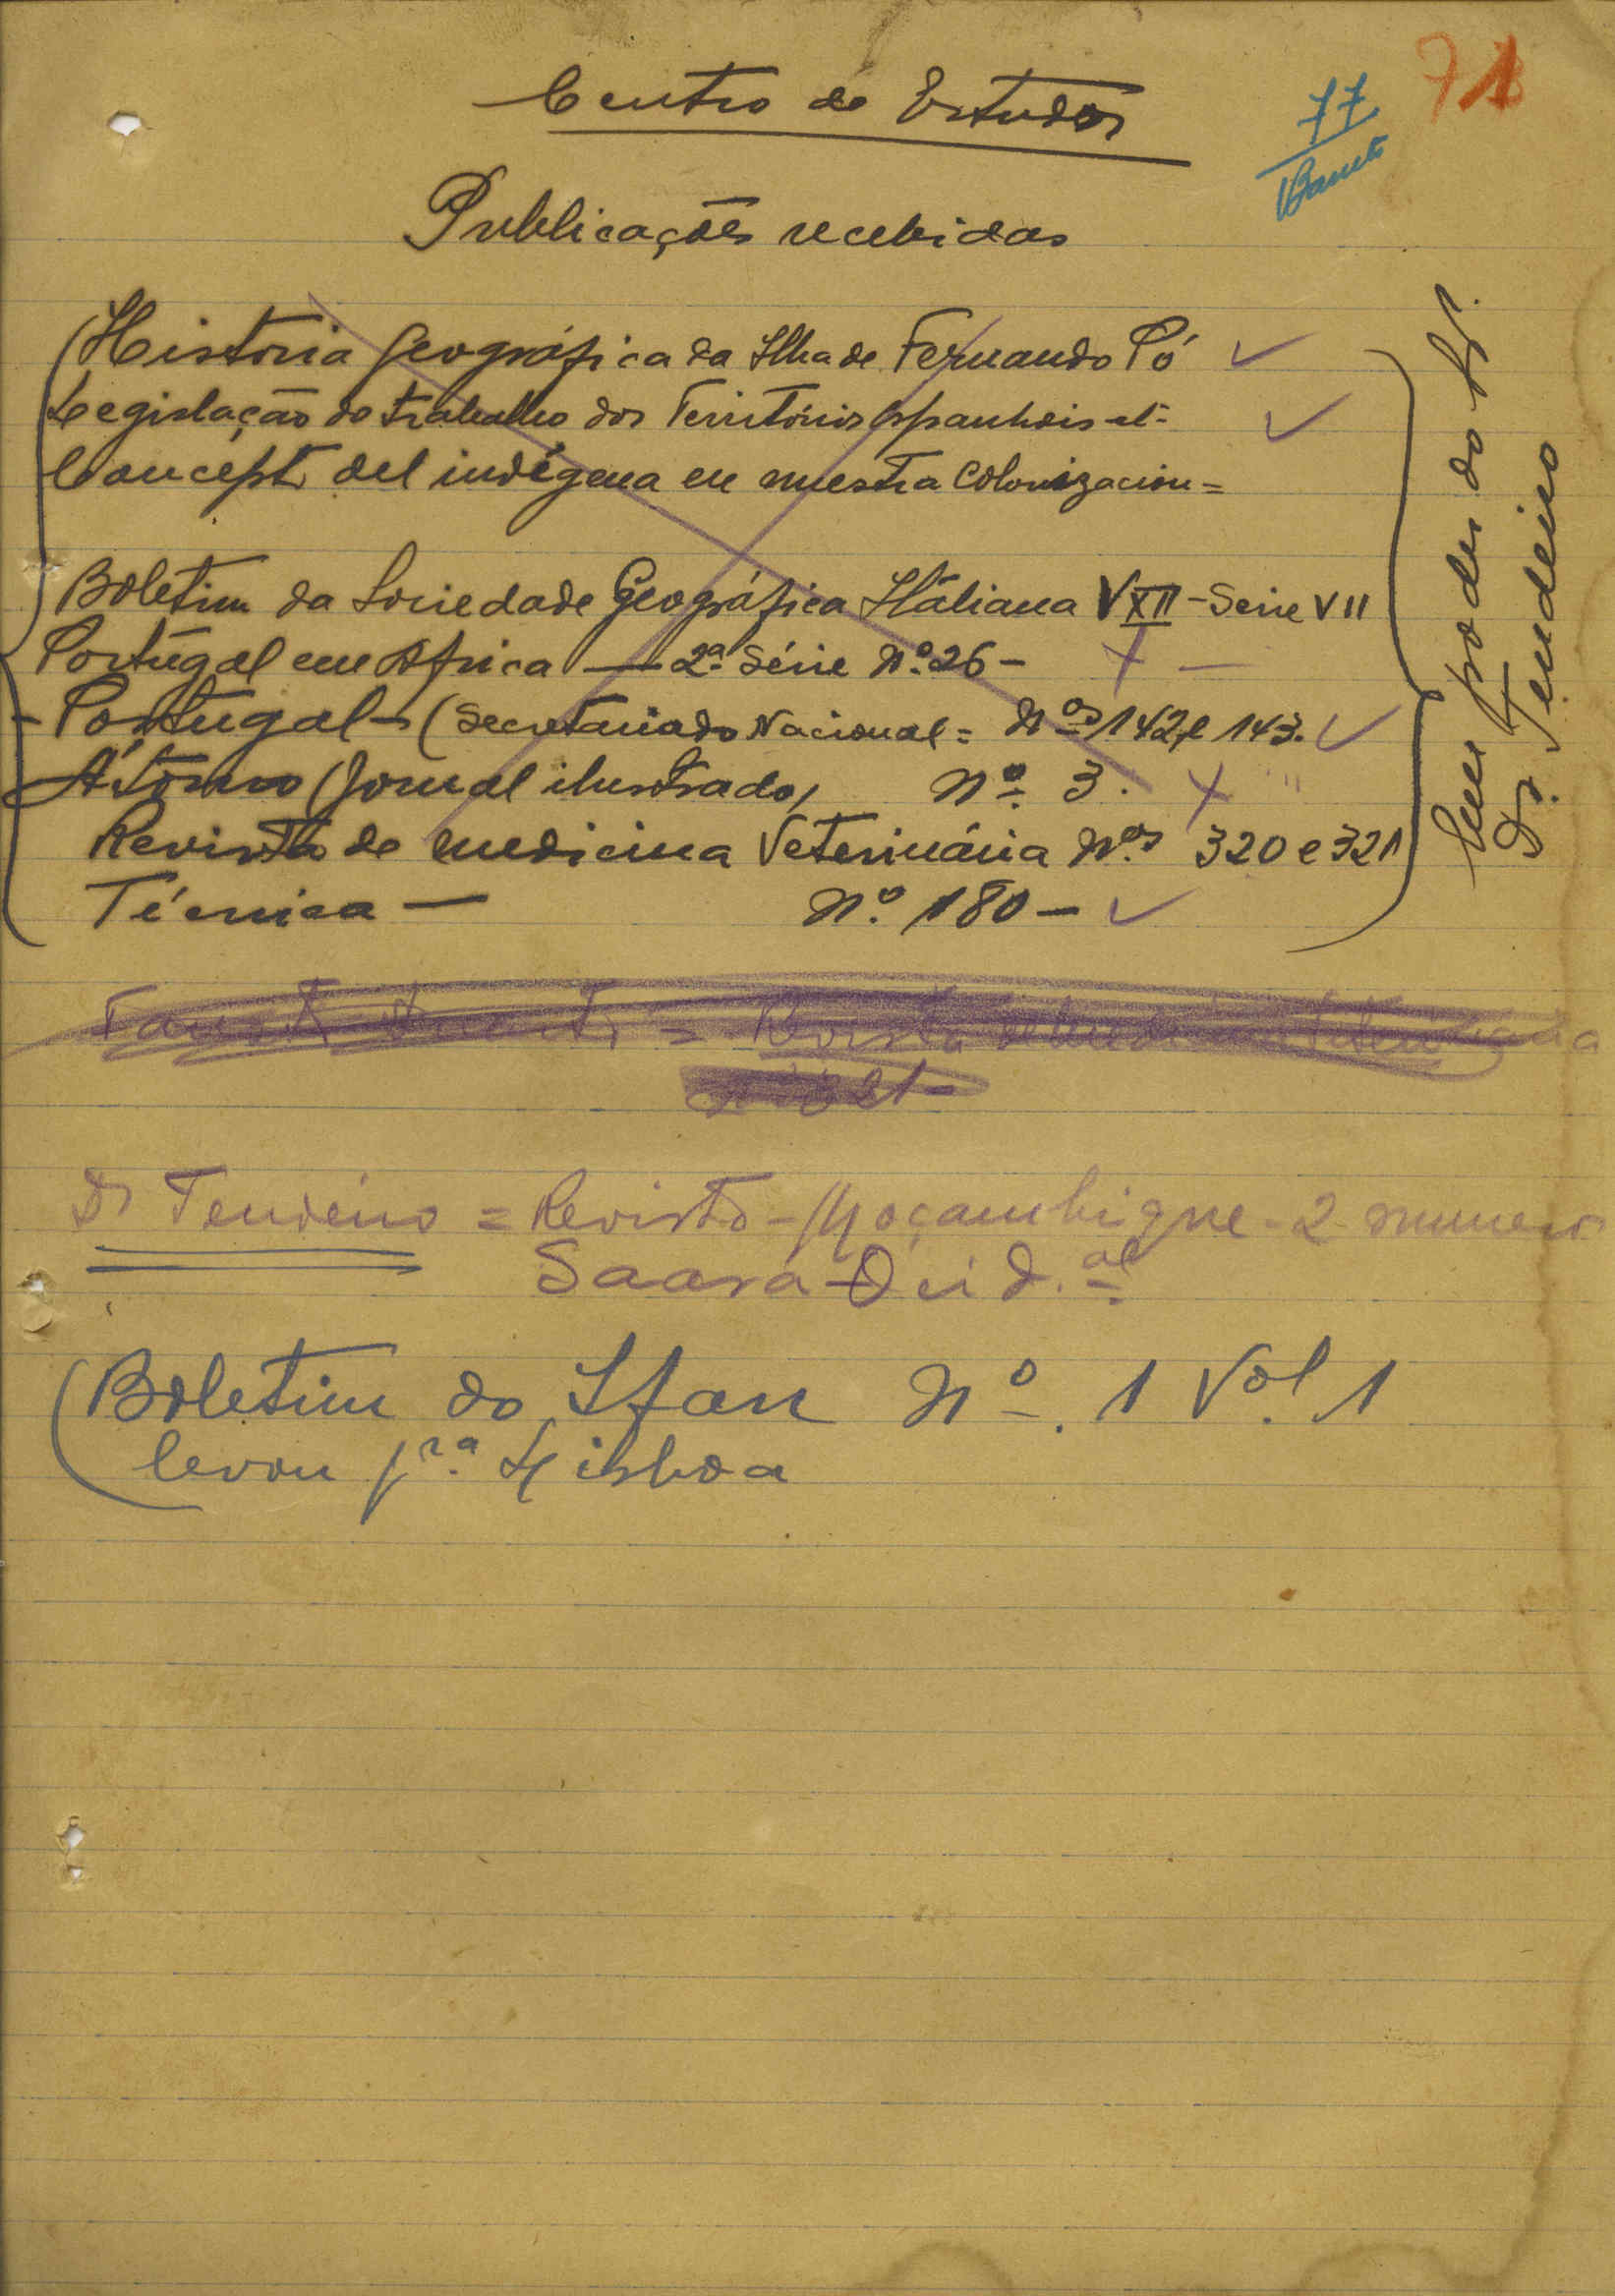 71
77
Centro de Estudos
Publicações recebidas
Historia Geográfica da Ilha de Fernando Pó
Legislação do trabalho dos Territórios espanhois et-
Concept del indígena en nuestra colonizacion=
Boletim da Sociedade Geográfica Itáliana VXII-Serie VII
Portugal em Africa — 2ª Série Nº 26-
-Portugal-(Secretariado Nacional= Nos 142 e 143.
Átomo (Jornal ilustrado, Nº 3.
Revista de medicina Veterinária Nos 320 e 321
Técnica — Nº 180-
Em poder do Sr.
Dr. Tendeiro
Fausto Duarte = Revista de
Dr Tendeiro = Revista-Moçambique-2-numeros
Saara
(Boletim do Ifan Nº. 1 Vol. 1
levou pra. Lisboa